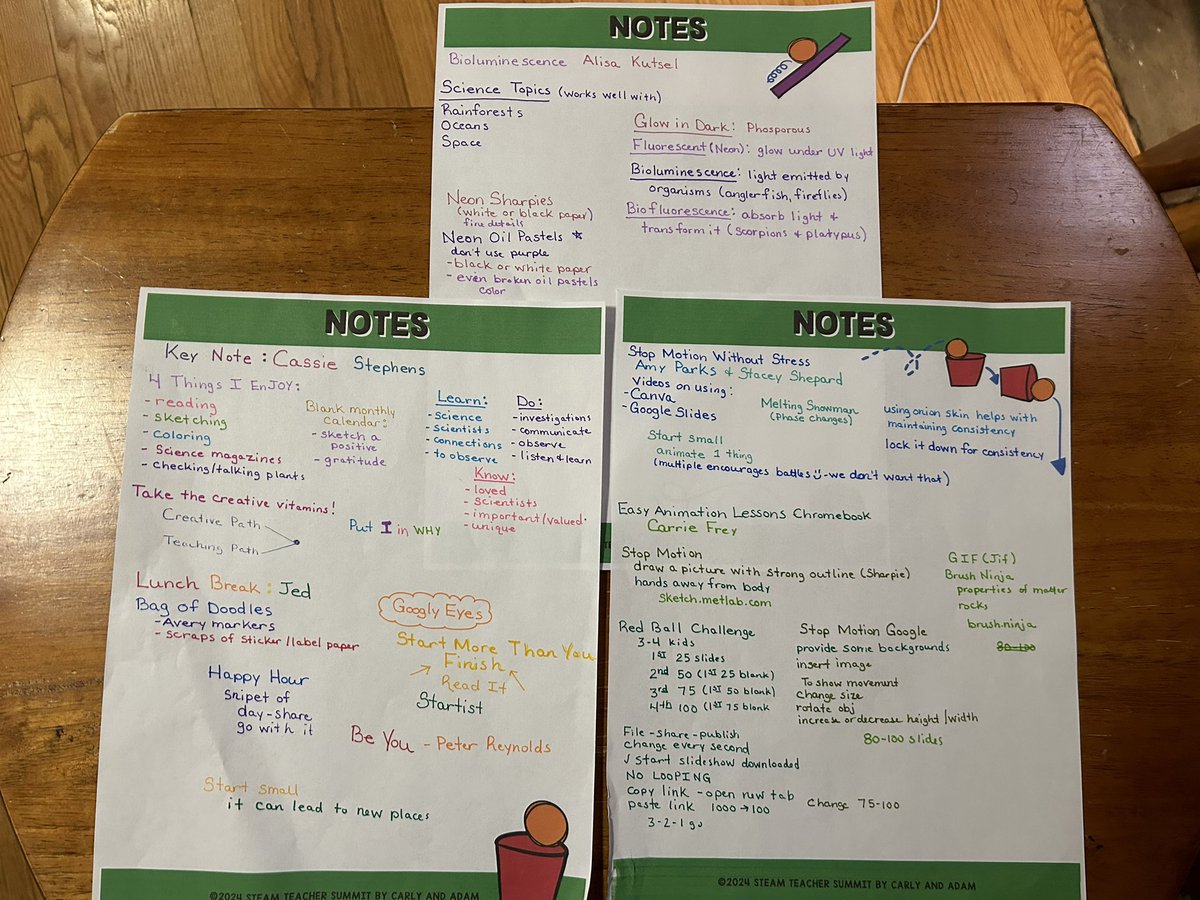 NOTES
Bioluminescence Alisa Kutsel
Science Topics (works well with)
Rainforests
Oceans
Space
Glow in Dark: Phosporous
Fluorescent (Neon): glow under UV light
Bioluminescence: light emitted by
organisms (anglerfish, fireflies)
Biofluorescence: absorb light &
transform it (scorpions & platypus)
Neon Sharpies
(white or black paper)
fine details
Neon Oil Pastels ☆
don't use purple
- black or white paper
- even broken oil pastels
color
NOTES
Key Note: Cassie Stephens
4 Things I EnJOY:
- reading
- sketching
- coloring
- Science magazines
- checking/talking plants
Blank monthly
calendar:
- sketch a
positive
- gratitude
Learn:
- science
- scientists
- connections
- to observe
Do:
- investigations
- communicate
- observe
- listen & learn
Know:
- loved
- scientists
- important/valued
- unique
Take the creative vitamins!
Creative Path
Teaching Path
Put I in WHY
Lunch Break: Jed
Bag of Doodles
- Avery markers
- scraps of sticker/label paper
Googly Eyes
Start More Than You
Finish
Read It
Startist
Happy Hour
Snipet of
day - share
go with it
Be You - Peter Reynolds
Start small
it can lead to new places
©2024 STEAM TEACHER SUMMIT BY CARLY AND ADAM
NOTES
Stop Motion Without Stress
Amy Parks & Stacey Shepard
Videos on using:
- Canva
- Google Slides
Melting Snowman
(phase changes)
using onion skin helps with
maintaining consistency
lock it down for consistency
Start small
animate 1 thing
(multiple encourages battles - we don't want that)
Easy Animation Lessons Chromebook
Carrie Frey
Stop Motion
draw a picture with strong outline (Sharpie)
hands away from body
sketch.metlab.com
GIF (Jif)
Brush Ninja
properties of matter
rocks
brush.ninja
80-100
Red Ball Challenge
3-4 kids
1st 25 slides
2nd 50 (1st 25 blank)
3rd 75 (1st 50 blank)
4th 100 (1st 75 blank
Stop Motion Google
provide some backgrounds
insert image
To show movement
change size
rotate obj
increase or decrease height/width
80-100 slides
File - share - publish
change every second
√ start slideshow downloaded
NO LOOPING
copy link - open new tab
paste link 1000→100
Change 75-100
3-2-1 go
©2024 STEAM TEACHER SUMMIT BY CARLY AND ADAM